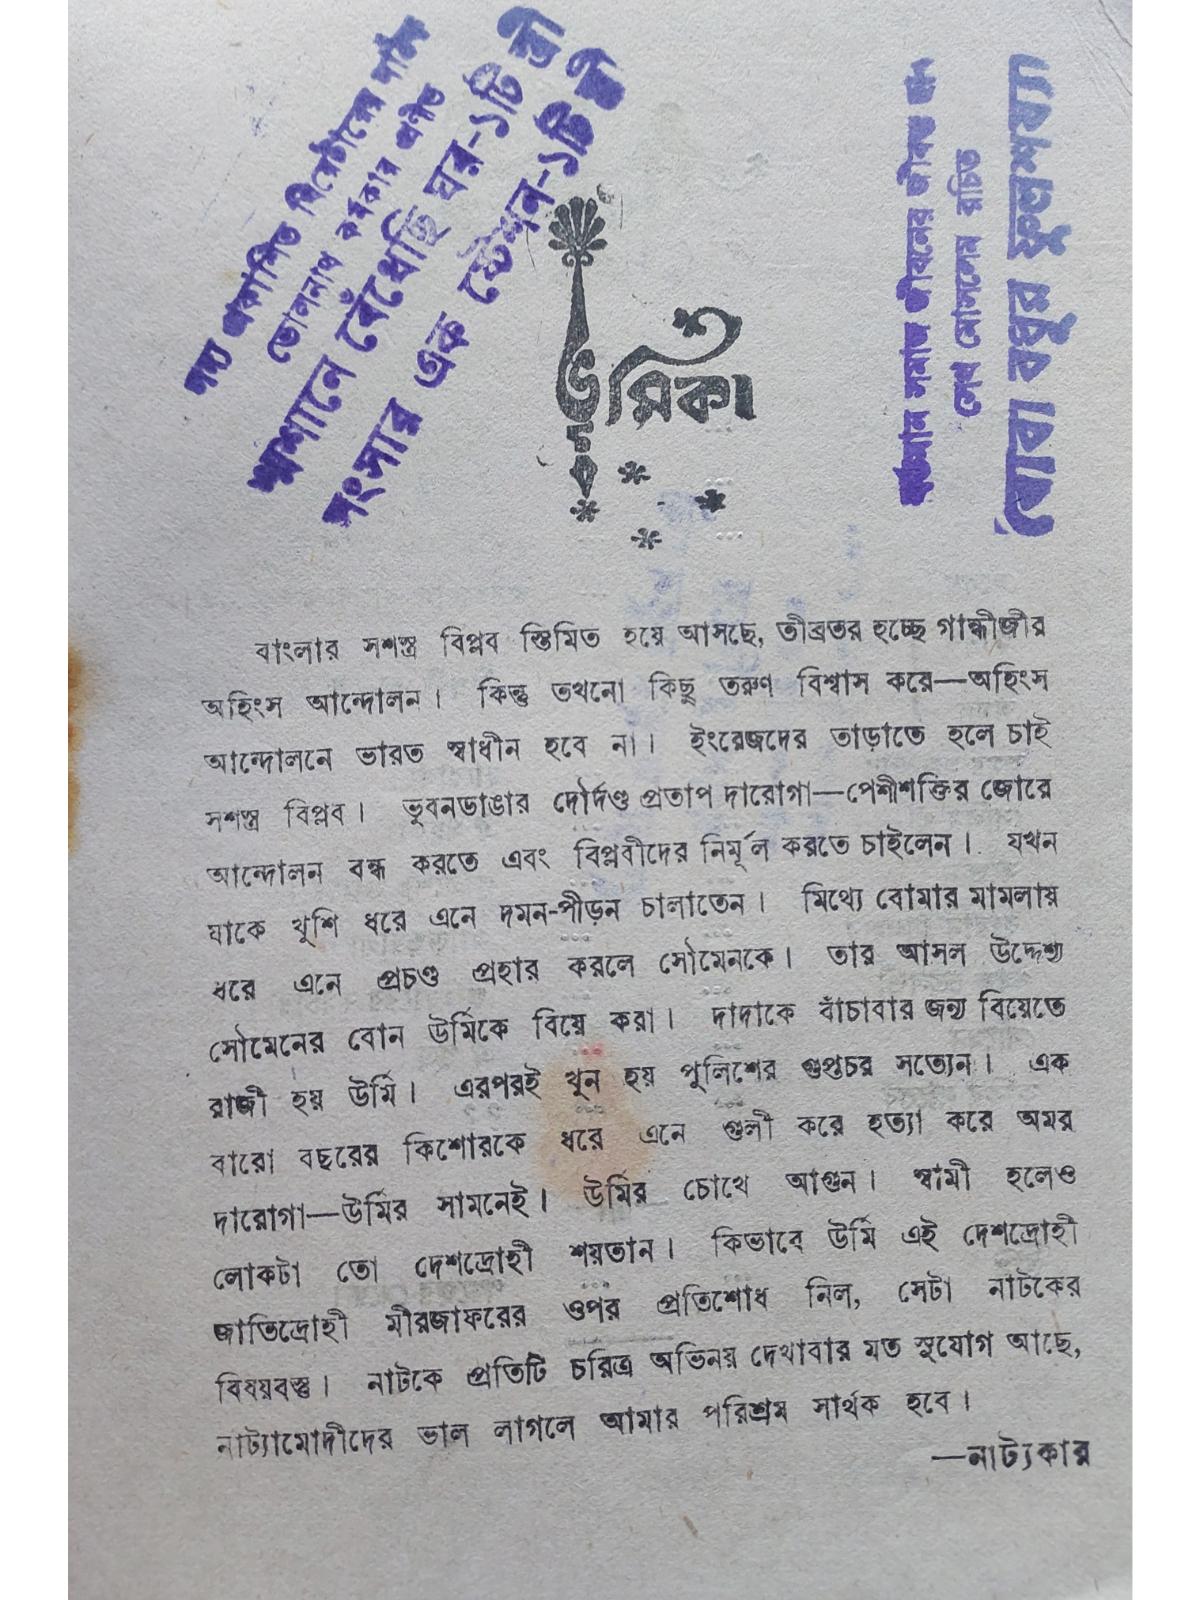 সদ্য প্রকাশিত থিয়েটারের নাটক
ভোলানাথ কর্মকার প্রণীত
শ্মশানে বেঁধেছি ঘর-১টি স্ত্রী
সংসার এক ষ্টেশন-১টি স্ত্রী
বর্তমান সমাজ জীবনের জীবন্ত
সেখ মোসলেম রচিত
বোবা বধুর ফুলশয্যা
ভূমিকা
বাংলার সশস্ত্র বিপ্লব স্তিমিত হয়ে আসছে, তীব্রতর হচ্ছে গান্ধীজীর
অহিংস আন্দোলন। কিন্তু তখনো কিছু তরুণ বিশ্বাস করে—অহিংস
আন্দোলনে ভারত স্বাধীন হবে না। ইংরেজদের তাড়াতে হলে চাই
সশস্ত্র বিপ্লব। ভুবনডাঙার দৌর্দণ্ড প্রতাপ দারোগা—পেশীশক্তির জোরে
আন্দোলন বন্ধ করতে এবং বিপ্লবীদের নির্মূল করতে চাইলেন। যখন
যাকে খুশি ধরে এনে দমন-পীড়ন চালাতেন। মিথ্যে বোমার মামলায়
ধরে এনে প্রচণ্ড প্রহার করলে সৌমেনকে। তার আসল উদ্দেশ্য
সৌমেনের বোন উর্মিকে বিয়ে করা। দাদাকে বাঁচাবার জন্য বিয়েতে
রাজী হয় উর্মি। এরপরই খুন হয় পুলিশের গুপ্তচর সত্যেন। এক
বারো বছরের কিশোরকে ধরে এনে গুলী করে হত্যা করে অমর
দারোগা—উর্মির সামনেই। উর্মির চোখে আগুন। স্বামী হলেও
লোকটা তো দেশদ্রোহী শয়তান। কিভাবে উর্মি এই দেশদ্রোহী
জাতিদ্রোহী মীরজাফরের ওপর প্রতিশোধ নিল, সেটা নাটকের
বিষয়বস্তু। নাটকে প্রতিটি চরিত্র অভিনয় দেখাবার মত সুযোগ আছে,
নাট্যামোদীদের ভাল লাগলে আমার পরিশ্রম সার্থক হবে।
—নাট্যকার